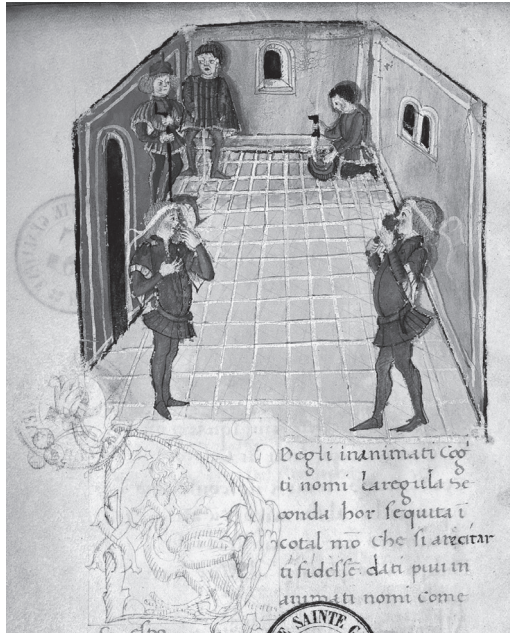 Degli inanimati Cog
ti nomi la regula Se
conda hor sequita ĩ
cotal mō che si arecitar
ti fidesse dati piui in
animati nomi come
E SAINTE G